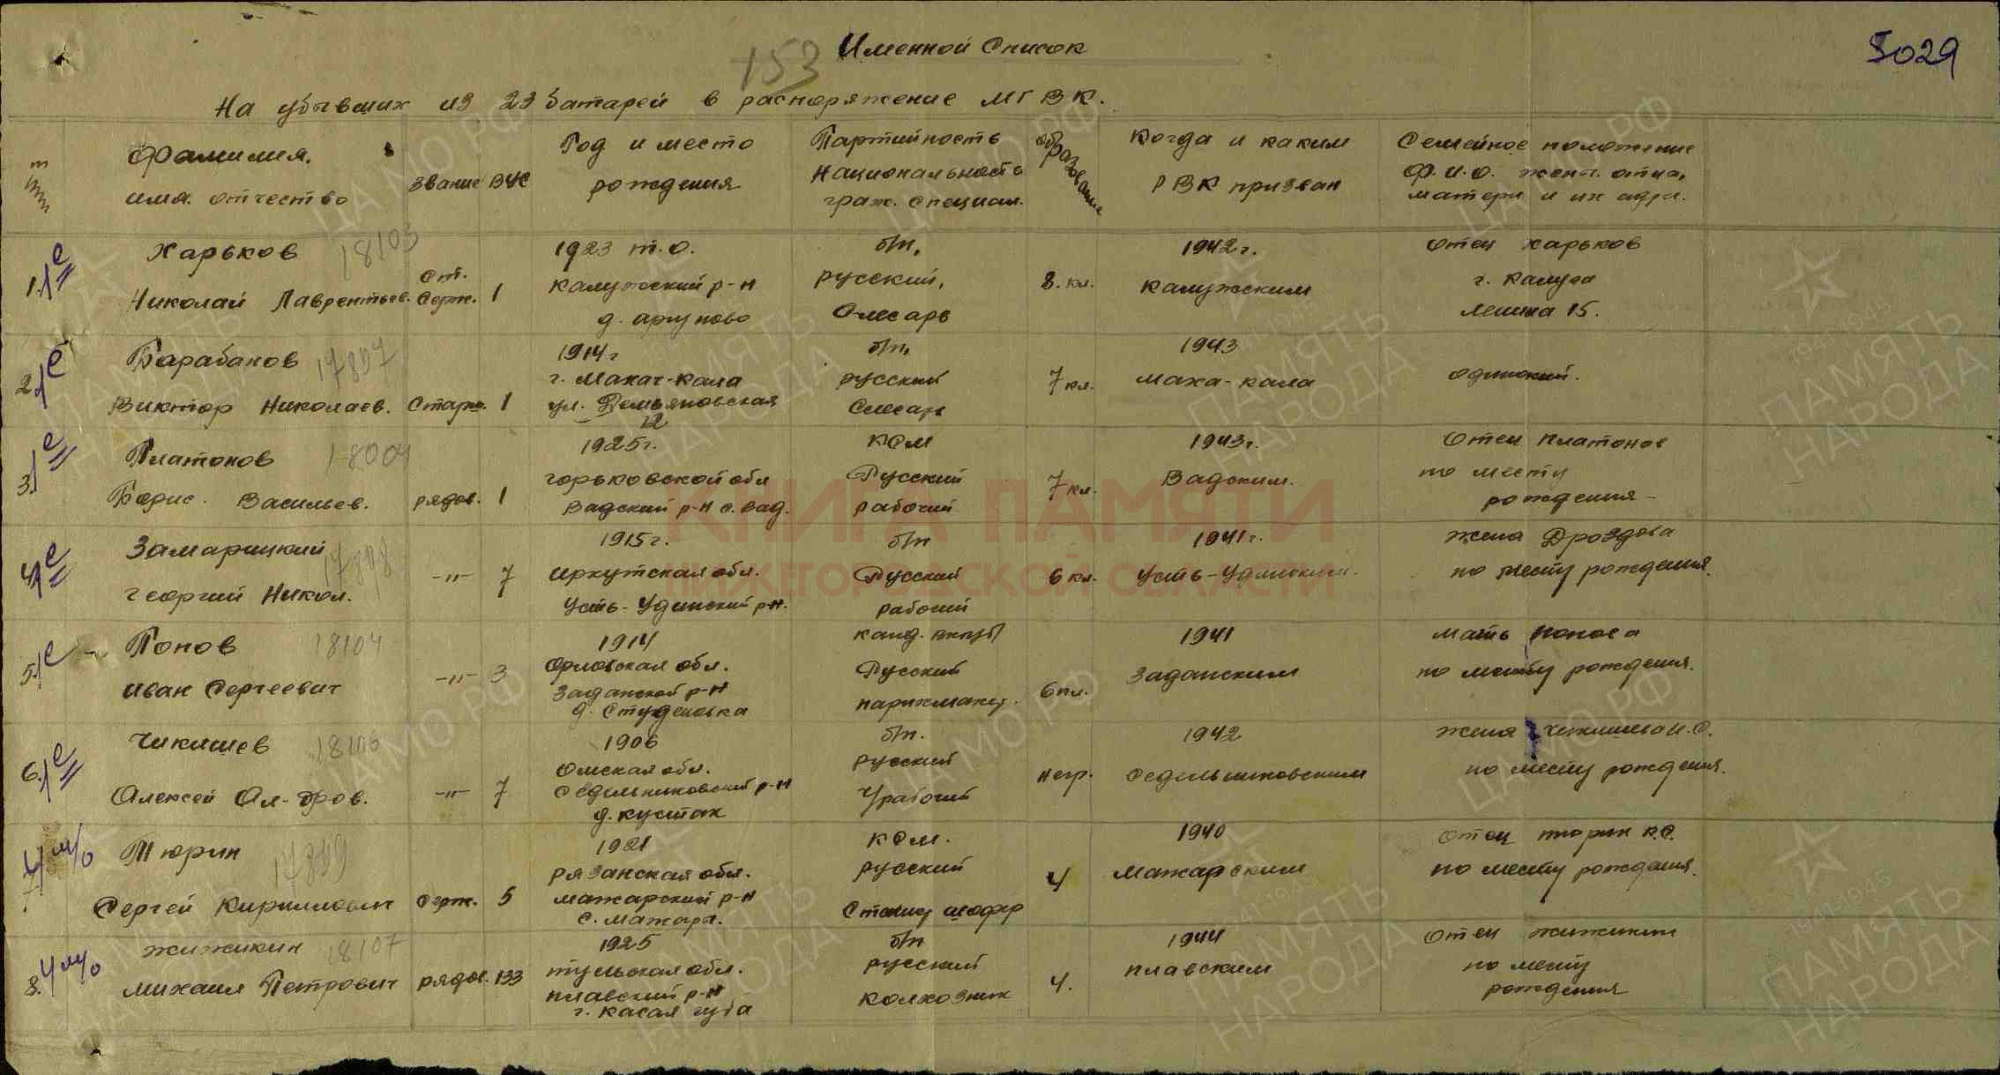 Именной Список
153
5029
На убывших из 23 батареи в распоряжение МГВК.
Фамилия.
имя. отчество
звание
ВУС
Год и место
рождения
Партийность
Национальность
граж. специал.
образование
Когда и каким
РВК призван
Семейное положение
Ф.И.О. жены. отца,
матери и их адра.
1.
Харьков 18103
Николай Лаврентьев.
Ст.
Серж.
1
1923 т.о.
Калужский р-н
б/п.
русский,
Слесарь
8. кл.
1942г.
Калужским
отец Харьков
г. Калуга
Ленина 15.
2.
Барабанов 17897
Виктор Николаев.
Старш.
1
1914г
г. Махач-Кала
ул. Демьяновская
12
б/п.
русский
Слесарь
7 кл.
1943
Маха-кала
одинокий.
3.
Платонов 18004
Борис. Васильев.
рядов.
1
1925г.
горьковской обл
Вадский р-н с. Вад.
КСМ
Русский
рабочий
7 кл.
1943г.
Вадским.
отец Платонов
по месту
рождения-
4.
Замарицкий 17898
Георгий Никол.
-"-
7
1915г.
Иркутская обл.
Усть-Удинский р-н.
б/п
Русский
рабочий
6 кл.
1941г.
Усть-Удинским.
жена Дроздова
по месту рождения.
5.
Попов 18104
Иван Сергеевич
-"-
3
1914
Орловская обл.
Задонский р-н
д. Студеновка
канд. вкп/б/
Русский
парикмахер.
6 кл.
1941
Задонским
мать Попова
по месту рождения.
6.
Чикишев 18106
Алексей Ал-дров.
-"-
7
1906
Омская обл.
Седельниковский р-н
д. кустах
б/п.
русский
рабочий
негр.
1942
Седельниковским
жена Чикишева И.С.
по месту рождения.
7.
Тюрин 17899
Сергей Кириллович
серж.
5
1921
Рязанская обл.
Мажарский р-н
с. Мажары.
КСМ.
русский
шофер
4
1940
Мажарским
отец Тюрин К.С.
по месту рождения.
8.
Жижикин 18107
Михаил Петрович
рядов.
133
1925
Тульская обл.
Плавский р-н
б/п
русский
колхозник
4.
1944
Плавским
отец Жижикин
по месту
рождения
КНИГА ПАМЯТИ
НИЖЕГОРОДСКОЙ ОБЛАСТИ
ЦАМО РФ
ПАМЯТЬ
НАРОДА
1941-1945